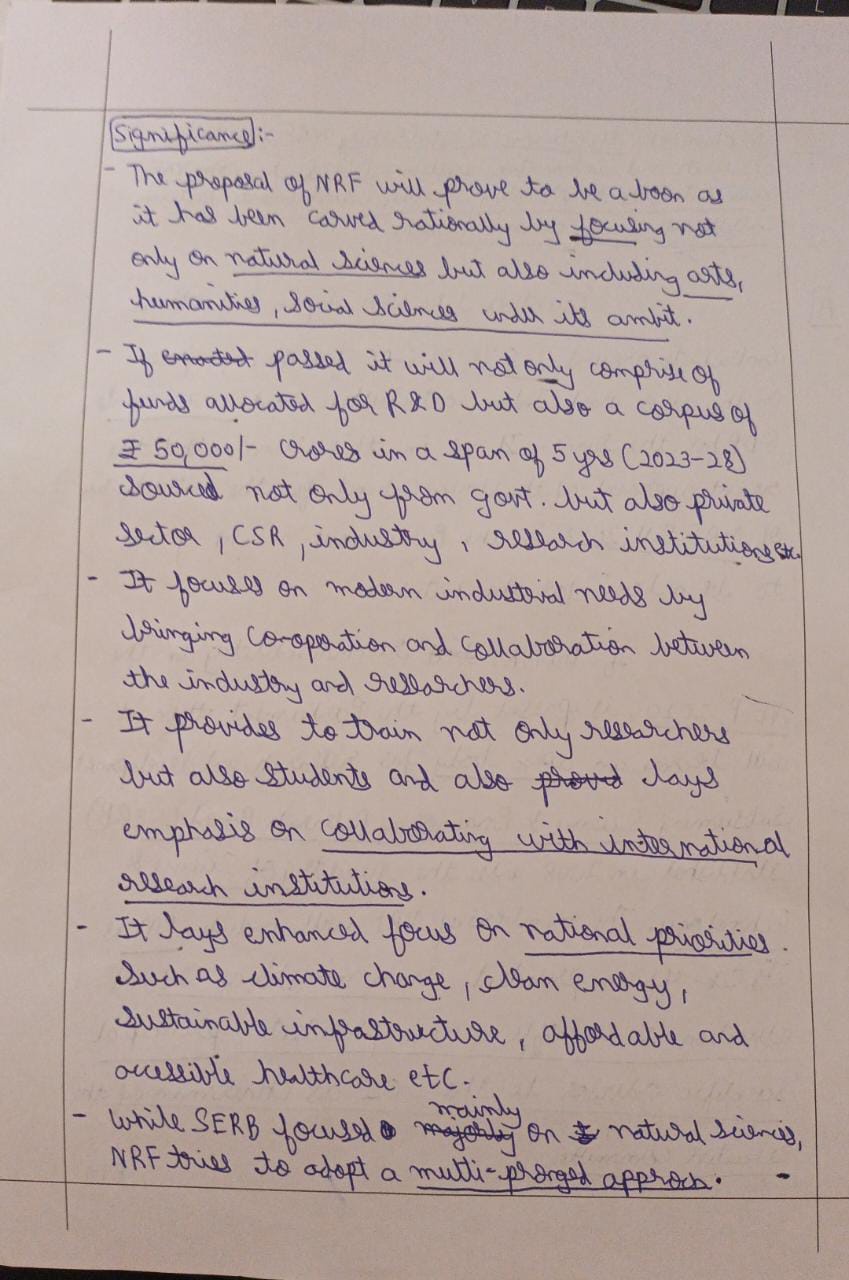 Significance:-
- The proposal of NRF will prove to be a boon as
it has been carved rationally by focusing not
only on natural sciences but also including arts,
humanities, social sciences under its ambit.
- If enacted passed it will not only comprise of
funds allocated for R&D but also a corpus of
₹ 50,000/- crores in a span of 5 yrs (2023-28)
sourced not only from govt. but also private
sector, CSR, industry, research institutions etc.
- It focuses on modern industrial needs by
bringing co-operation and collaboration between
the industry and researchers.
- It provides to train not only researchers
but also students and also proved lays
emphasis on collaborating with international
research institutions.
- It lays enhanced focus on national priorities.
such as climate change, clean energy,
sustainable infrastructure, affordable and
accessible healthcare etc.
mainly
- While SERB focused majorly on natural sciences,
NRF tries to adopt a multi-pronged approch.